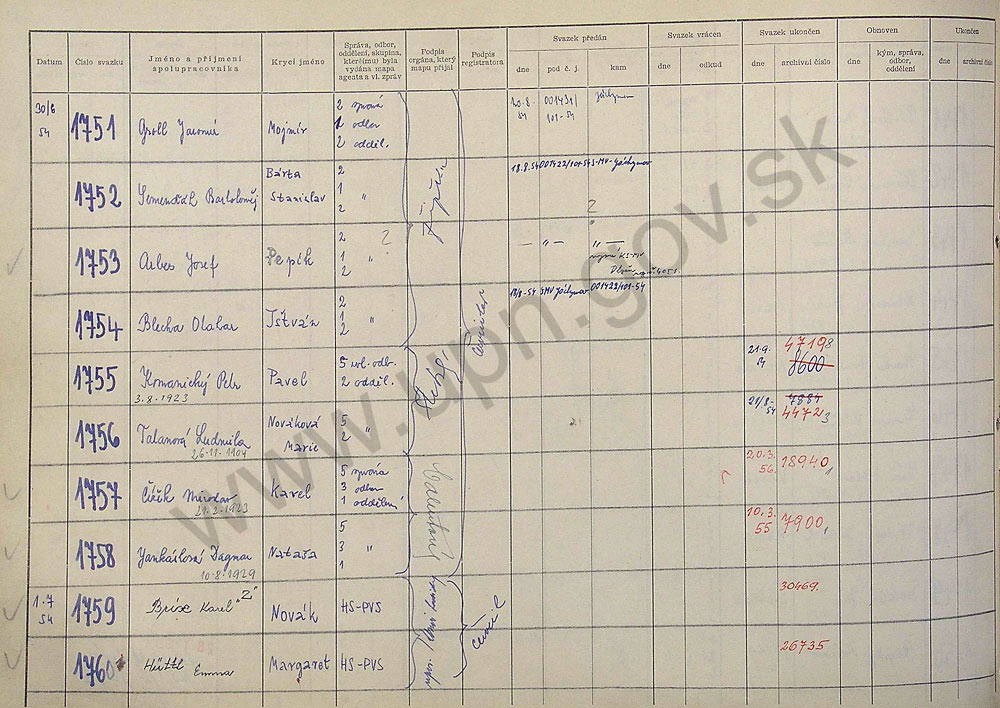 Datum
Číslo svazku
Jméno a příjmení spolupracovníka
Krycí jméno
Správa, odbor, oddělení, skupina, které(mu) byla vydána mapa agenta a vl. zpráv
Podpis orgána, který mapu přijal
Podpis registratora
Svazek předán
dne
pod č. j.
kam
Svazek vrácen
dne
odkud
Svazek ukončen
dne
archivní číslo
Obnoven
dne
kým, správa, odbor, oddělení
Ukončen
dne
archivní číslo
30/6 54 1751 Groll Jaromír Mojmír 2 správa 1 odbor 2 odděl. 20.8. 54 001431/101-54 Jáchymov
1752 Bárta Stanislav 2 1 " 2 18.8.54 001422/101-54 S-MV-Jáchymov
1753 Arbes Josef Pepík 2 1 " 2 — " — " —
1754 Blecha Otakar Ištván 2 1 " 2 18/8-54 SMV Jáchymov 001422/101-54
1755 Komanický Petr 3.8.1923 Pavel 5 odb. 2 odděl. 21.9. 54 47198 8600
1756 Talanová Ludmila 26.11.1904 Nováková Marie 5 2 " 21/8-54 7884 44723
1757 Čížik Miroslav 21.2.1923 Karel 5 správa 3 odbor 1 oddělení 20.3. 56. 18940
1758 Yankáilová Dagmar 10.8.1929 Nataša 5 3 " 1 10.3. 55 7900
1.7 54 1759 Brixe Karel "Z" Novák HS-PVS 30469.
1760 Hüttl Emma Margaret HS-PVS 26735
www.upn.gov.sk